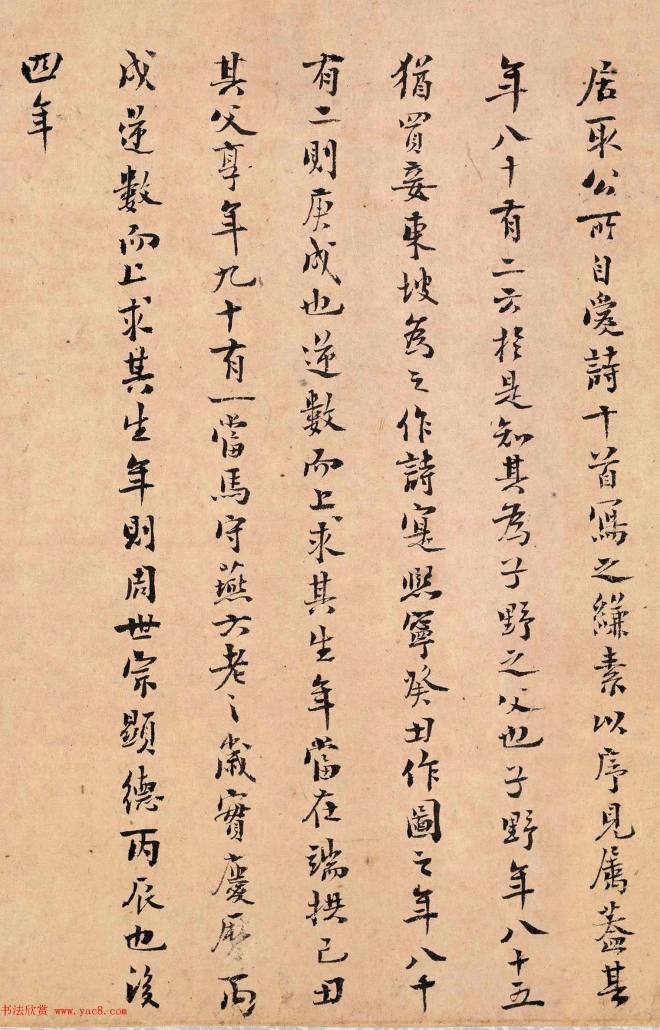 居取公所自愛詩十首寫之縑素以序見屬蓋其
年八十有二云於是知其為子野之父也子野年八十五
猶買妾東坡為之作詩寔熈寧癸丑作圖之年八十
有二則庚戌也逆數而上求其生年當在端拱己丑
其父享年九十有一當馬守燕六老之歲實慶厯丙
戌逆數而上求其生年則周世宗顯德丙辰也後
四年
书法欣赏 www.yac8.com